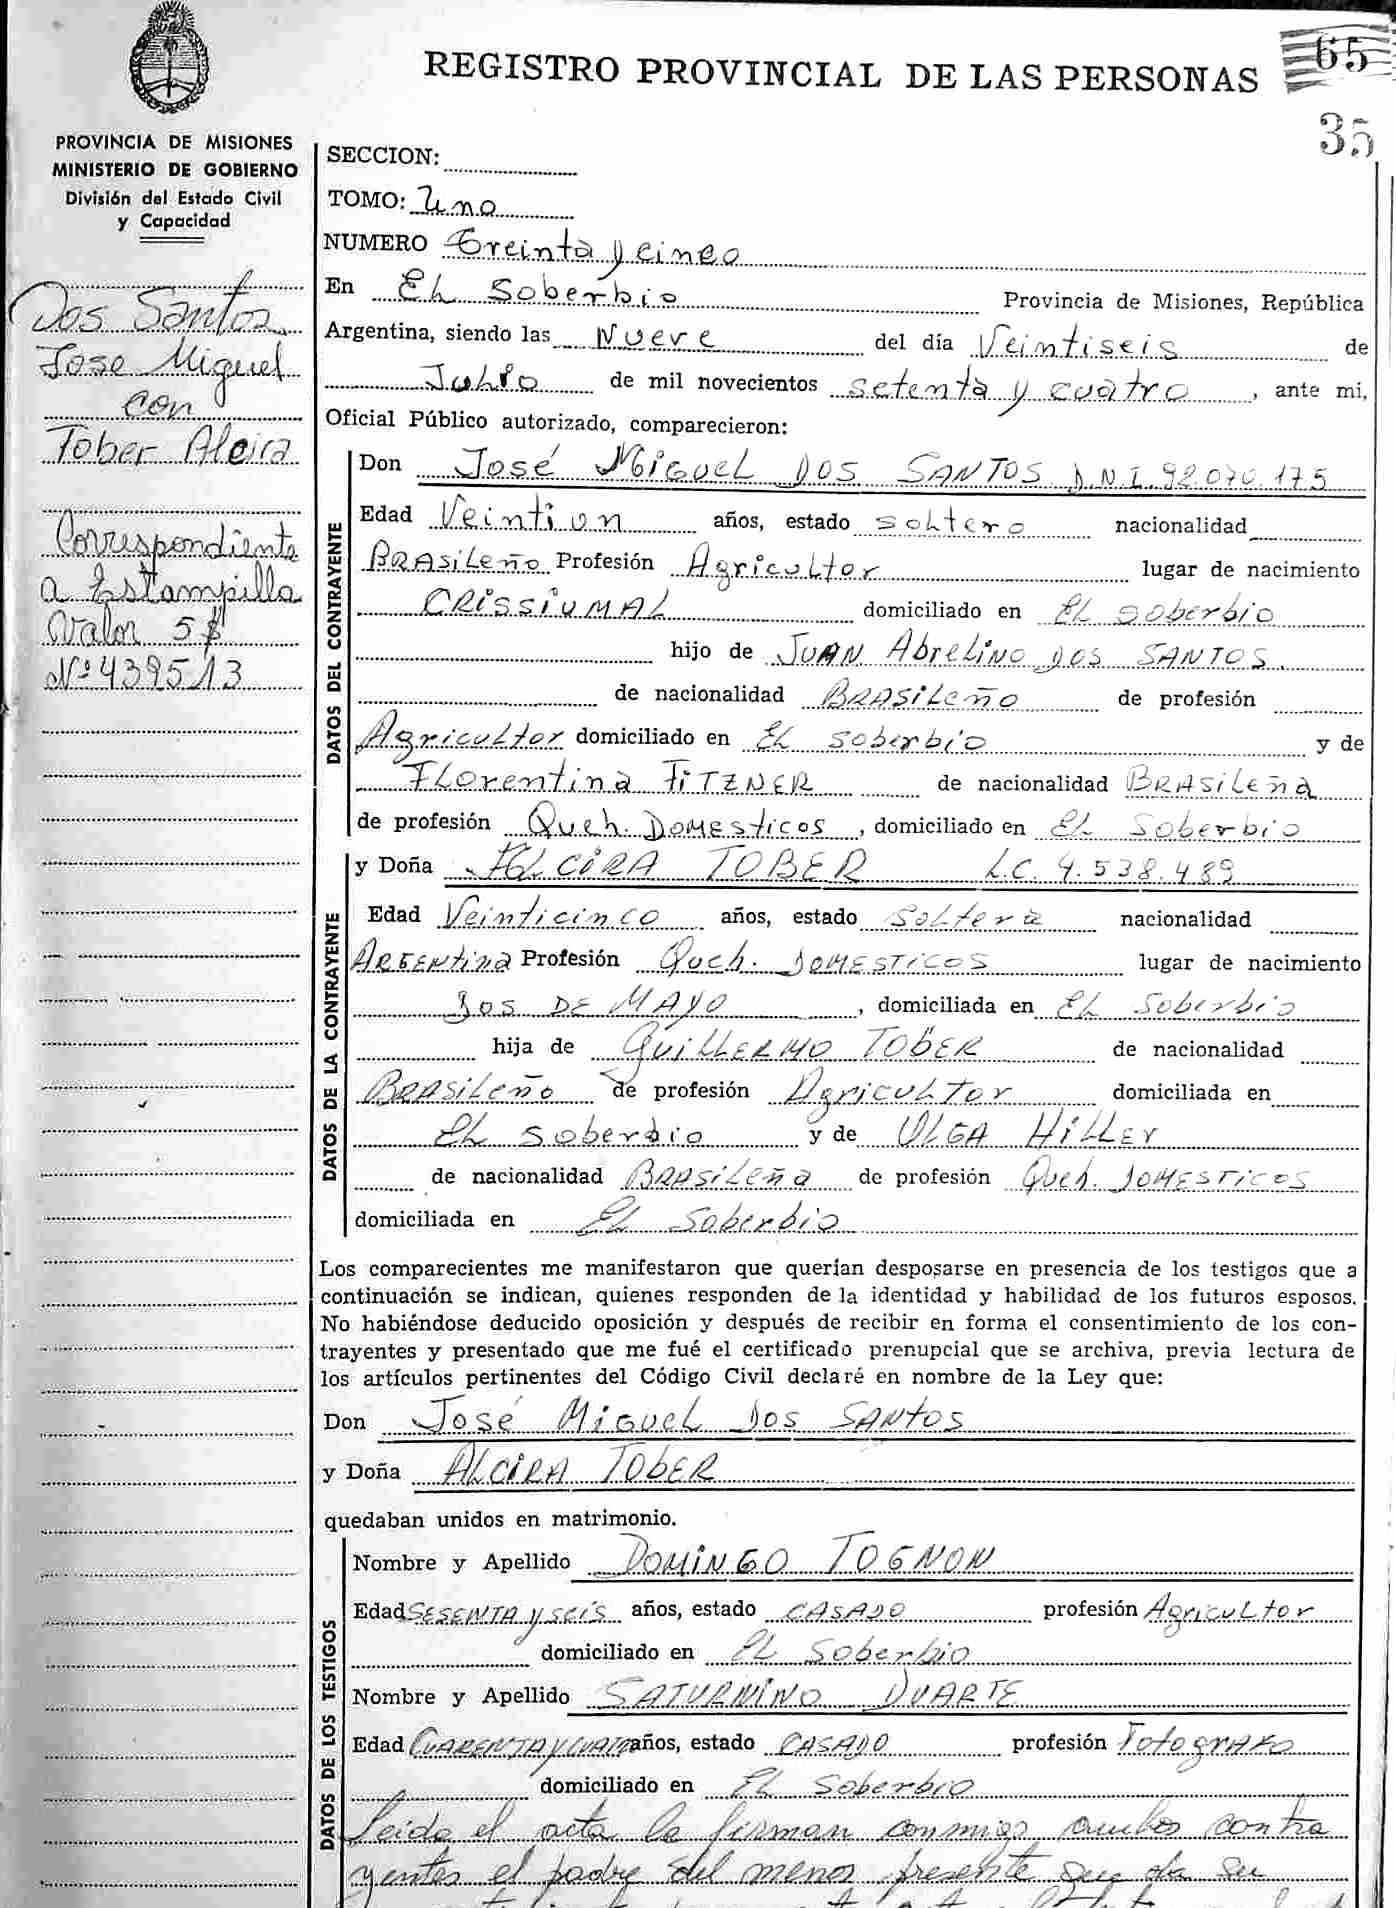 REGISTRO PROVINCIAL DE LAS PERSONAS
65
35
PROVINCIA DE MISIONES
MINISTERIO DE GOBIERNO
División del Estado Civil
y Capacidad
Dos Santos
Jose Miguel
con
Tober Alcira
Correspondiente
a Estampilla
Valor 5$
Nº 439513
SECCION:
TOMO: Uno
NUMERO Treinta y cinco
En El Soberbio Provincia de Misiones, República
Argentina, siendo las Nueve del día Veintiseis de
Julio de mil novecientos setenta y cuatro, ante mi,
Oficial Público autorizado, comparecieron:
DATOS DEL CONTRAYENTE
Don José Miguel DOS SANTOS D.N.I. 92.070.175
Edad Veintiun años, estado soltero nacionalidad
BRASiLeño Profesión Agricultor lugar de nacimiento
CRiSSiUMAL domiciliado en El soberbio
hijo de JUAN AbreLiNO DOS SANTOS.
de nacionalidad BRASiLeño de profesión
Agricultor domiciliado en El soberbio y de
Florentina FiTZNER de nacionalidad BRASiLeña
de profesión Queh. DOMESticos, domiciliado en El Soberbio
DATOS DE LA CONTRAYENTE
y Doña ALCiRA TOBER L.C. 4.538.489
Edad Veinticinco años, estado Soltera nacionalidad
ARGENtina Profesión Queh. DOMESTicos lugar de nacimiento
DOS DE MAYO, domiciliada en El Soberbio
hija de GUiLLERMO TOBER de nacionalidad
BRASiLeño de profesión Agricultor domiciliada en
El soberbio y de OLGA HiLLER
de nacionalidad BRASiLeña de profesión Queh. DOMESTicos
domiciliada en El Soberbio
Los comparecientes me manifestaron que querían desposarse en presencia de los testigos que a
continuación se indican, quienes responden de la identidad y habilidad de los futuros esposos.
No habiéndose deducido oposición y después de recibir en forma el consentimiento de los con-
trayentes y presentado que me fué el certificado prenupcial que se archiva, previa lectura de
los artículos pertinentes del Código Civil declaré en nombre de la Ley que:
Don José Miguel Dos SANtos
y Doña ALCiRA TOBER
quedaban unidos en matrimonio.
DATOS DE LOS TESTIGOS
Nombre y Apellido DOMiNGO TOGNON
Edad SESENTA y SEiS años, estado CASADO profesión Agricultor
domiciliado en El Soberbio
Nombre y Apellido SATURNiNO DUARTE
Edad CUARENTA y años, estado CASADO profesión Fotografo
domiciliado en El Soberbio
Leida el acta la firman conmigo ambos contra
yentes el padre del menor presente que da su